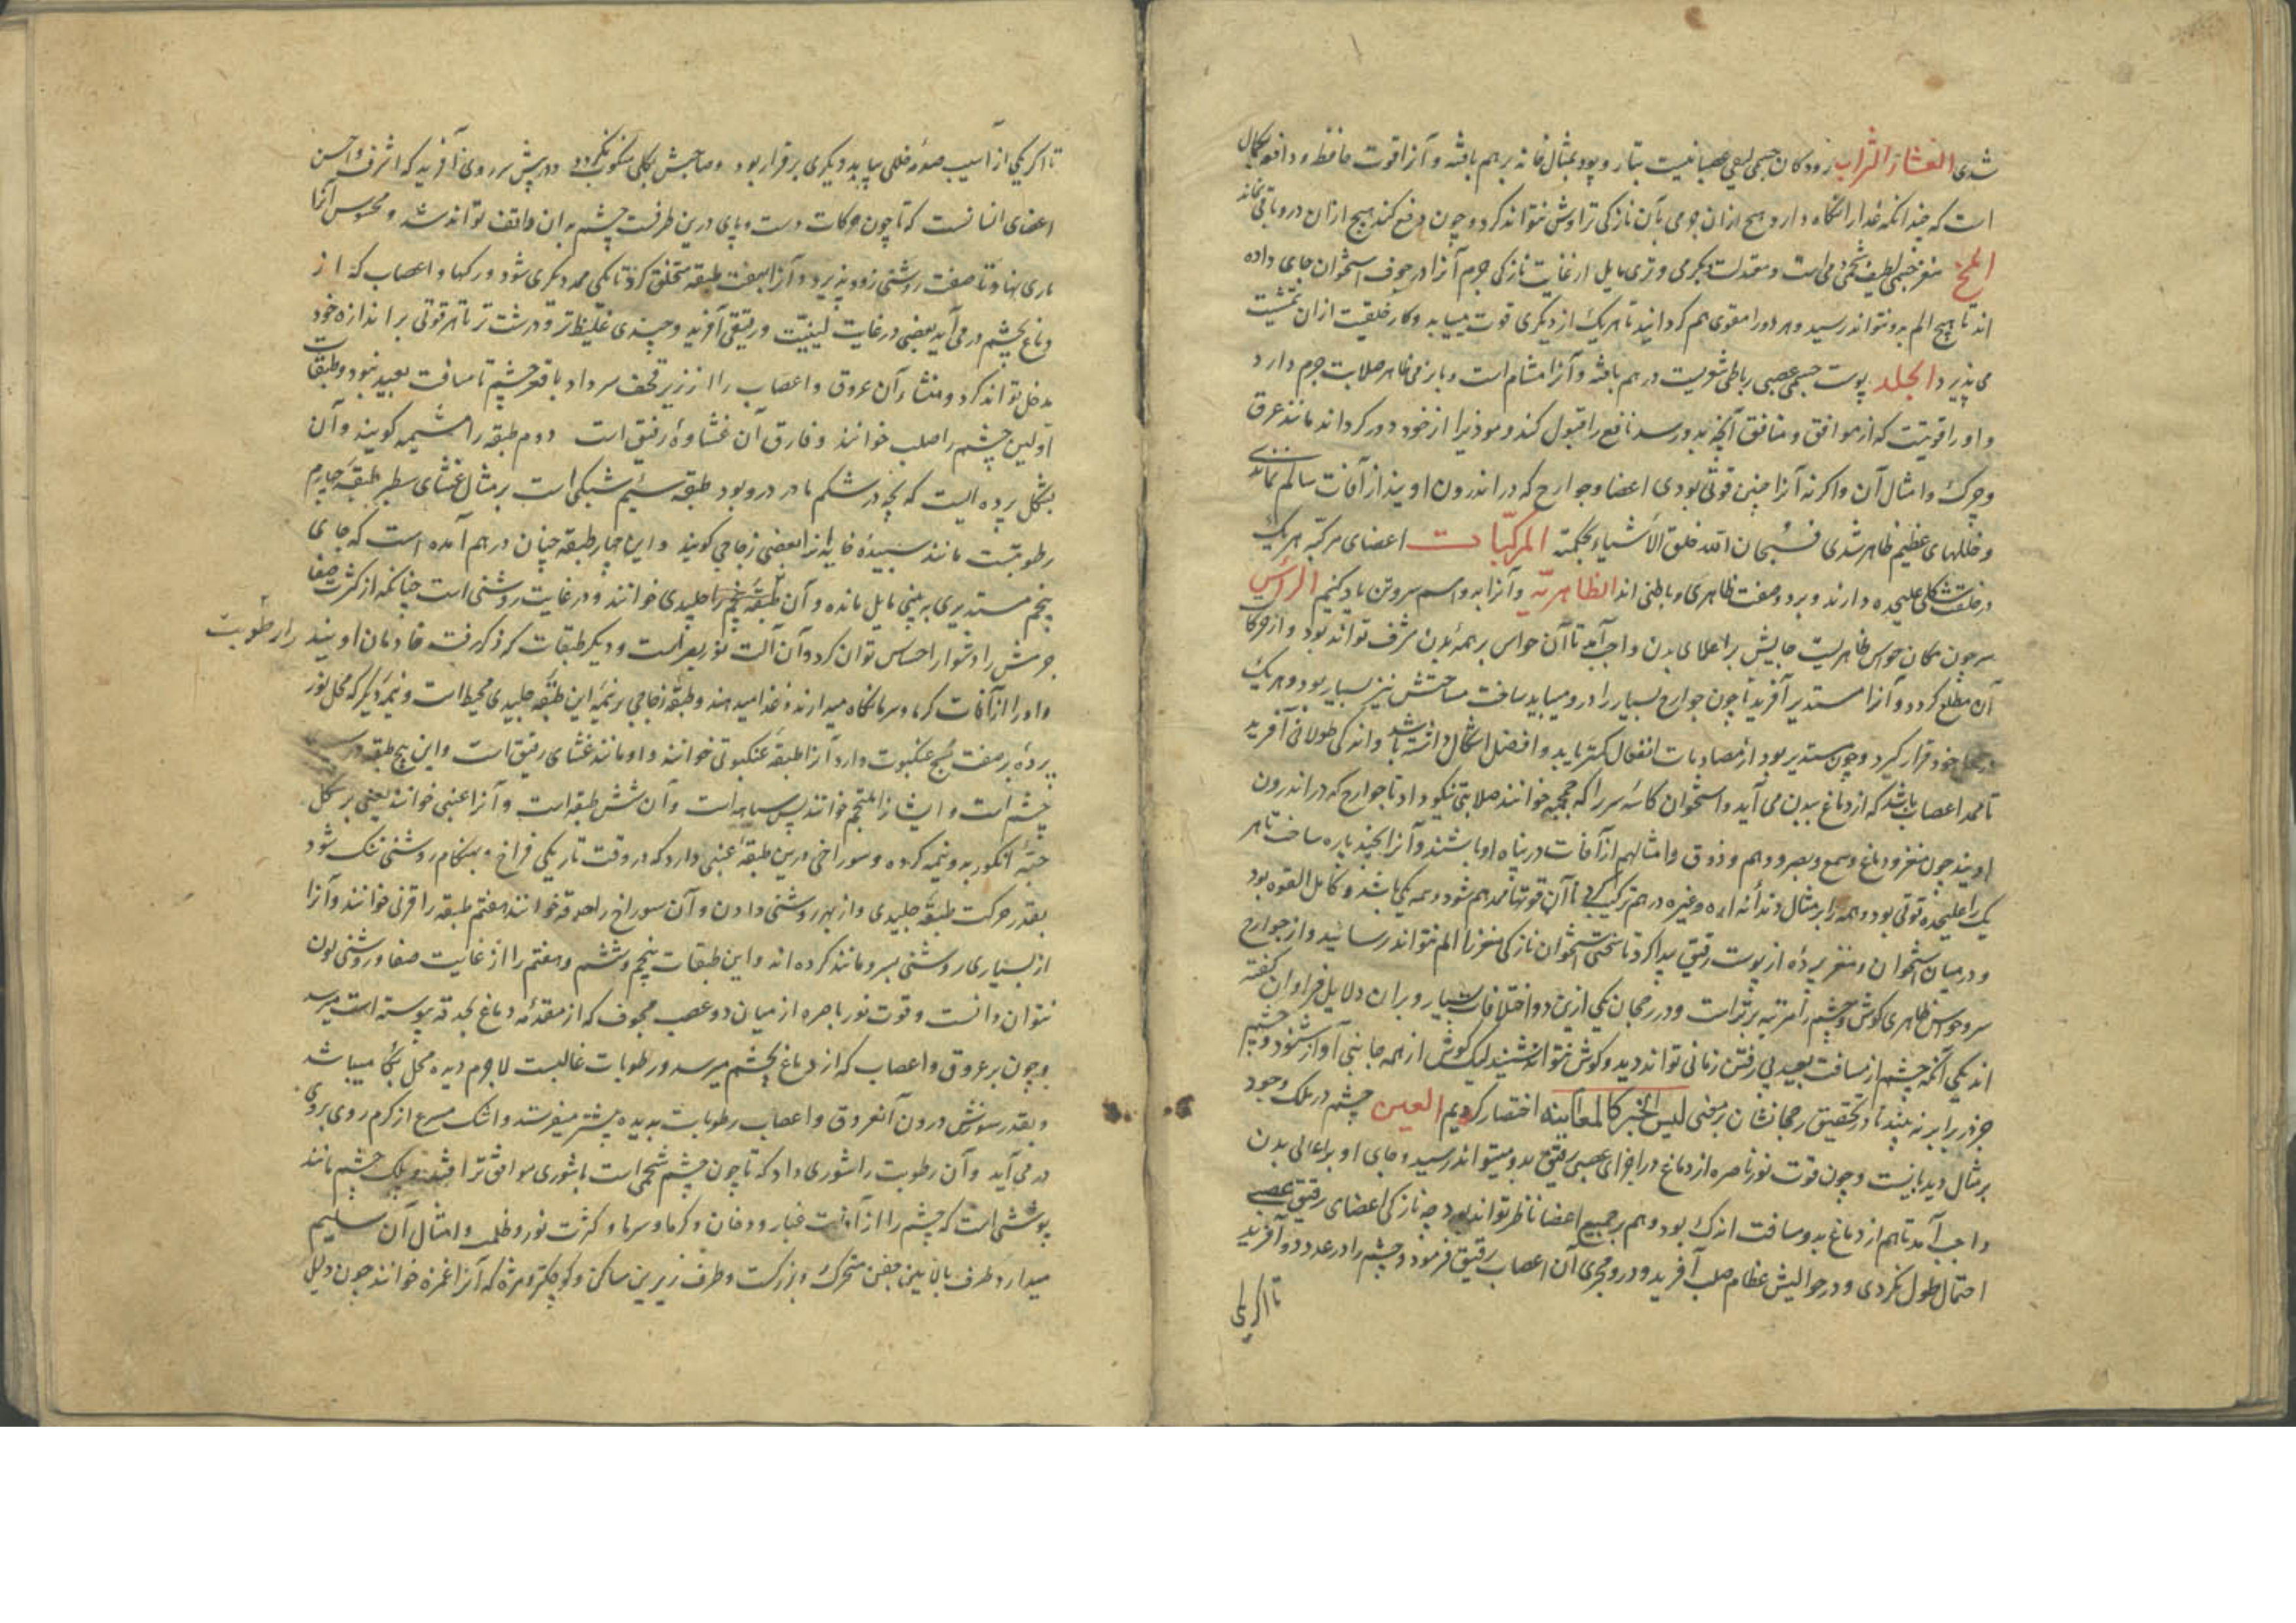 شدی الغشاء التراب رودکان جسمی لیفی عصبانیست بتار و پود بمثال خانه بر هم بافته و آنرا قوت حافظه و دافعه بکمال
است که چندانکه غذا را نگاه دارد هیچ ازان جرمی بآن نازکی تراوش نتواند کرد و چون دفع کند هیچ ازان درو باقی نماند
المخ مغز جسمی لطیف شحمی دمی است و معتدلست بگرمی و تری مایل از غایت نازکی جرم آنرا در جوف استخوان جای داده
اند تا هیچ الم بدو نتواند رسید و هر دو را مقوی هم گردانید تا هر یک از دیگری قوت مییابد و کار خلقیت ازان تمشیت
می پذیرد الجلد پوست جسمی عصبی رباطی شعریست در هم بافته و آنرا مشام است و بارز می ظاهر صلابت جرم دارد
و او را قوتیست که از موافق و منافق آنچه بدو رسد نافع را قبول کند و موذیرا از خود دور گرداند مانند عرق
و چرک و امثال آن و اگر نه آنرا چنین قوتی بودی اعضا و جوارح که در اندرون اویند از آفات سالم نماندی
و خللهای عظیم ظاهر شدی فسبحان الله خلق الأشیاء بحکمته المرکبات اعضای مرکبه هر یک
در خلقت شکلی علیحده دارند و بر دو صفت ظاهری و باطنی اند الظاهریه و آنرا بدو اسم سر و تن یاد کنیم الراس
سر چون مکان حواس ظاهریست جایش بر اعلای بدن واجب آمد تا آن حواس بر همهٔ بدن مشرف تواند بود و از حرکات
آن مطلع گردد و آنرا مستدیر آفرید تا چون جوارح بسیار را درو میباید ساخت مساحتش نیز بسیار بود و هر یک
در جای خود قرار گیرد و چون مستدیر بود از مصادمات انفعال کمتر یابد و افضل اشکال دانسته باشد و اندکی طولانی آفرید
تا ممد اعصاب باشد که از دماغ ببدن می آید و استخوان کاسهٔ سر را که جمجمه خوانند صلابتی نیکو داد تا جوارح که در اندرون
اویند چون مغز و دماغ و سمع و بصر و وهم و ذوق و امثالهم از آفات در پناه او باشند و آنرا بچند پاره ساخت تا هر
یک را علیحده قوتی بود و همه را بر مثال دندانهٔ اره و غیره در هم ترکیب کرد تا آن قوتها ممد هم شود و همه یکی باشد و کامل القوه بود
و در میان استخوان و مغز پردهٔ از پوست رقیق پیدا کرد تا سختی استخوان نازکی مغز را الم نتواند رسانید و از جوارح
سر و حواس ظاهری گوش و چشم را مرتبه برتر است و در رجحان یکی ازین دو اختلافات بسیار و بران دلایل فراوان گفته
اند یکی آنکه چشم از مسافت بعید بی رفتن زمانی تواند دید و گوش نتواند شنید لیک گوش از همه جانبی آواز شنود و چشم
جز در برابر نه بیند تا در تحقیق رجحانشان بر معنی لیس الخبر کالمعاینه اختصار کردیم العین چشم در ملک وجود
بر مثال دیدبانیست و چون قوت نور باصره از دماغ در اجزای عصبی رقیق بدو میتواند رسید و جای او بر اعالی بدن
واجب آمد تا هم از دماغ بدو مسافت اندک بود و هم بر جمیع اعضا ناظر تواند بود چه نازکی اعضای رقیق عصبی
احتمال طول نکردی و در حوالیش عظام صلب آفرید و درو مجری آن اعصاب رقیق فرمود و چشم را در عدد دو آفرید
تا اگر یکی
تا اگر یکی از آسیب صورهٔ خللی بیابد دیگری برقرار بود و صاحبش بکلی منکوب نگردد و در پیش سر روی آفرید که اشرف و احسن
اعضای انسانست که تا چون حرکات دست و پای درین طرفست چشم بران واقف تواند شد و محسوس آنرا
یاری نهاد تا صفت روشنی زود پذیرد و آنرا بهفت طبقه متخلق کرد تا یکی ممد دیگری شود و رکها و اعصاب که از
دماغ بچشم در می آید بعضی در غایت لینیت و رقیقی آفرید و چندی غلیظ تر و درشت تر تا هر قوتی بر اندازهٔ خود
مدخل تواند کرد و منشاء آن عروق و اعصاب را از زیر قحف سر داد با قعر چشم تا مسافت بعید نبود و طبقات
اولین چشم را صلب خوانند و فارق آن غشاوهٔ رقیق است دوم طبقه را مشیمیه گویند و آن
بشکل پرده ایست که بچه در شکم مادر درو بود طبقه سیم شبکی است بر مثال غشای سطبر طبقه چهارم
رطوبتیست مانند سپیدهٔ خایه آنرا بعضی زجاجی گویند و این چهار طبقه چنان در هم آمده است که جای
پنجم مستدیری به پنی مایل مانده و آن طبقهٔ پنجم را جلیدی خوانند و در غایت روشنی است چنانکه از کثرت صفا
جرمش را دشوار احساس توان کرد و آن آلت نور بصر است و دیگر طبقات که ذکر رفت خادمان اویند را رطوبت
و او را از آفات گرما و سرما نگاه میدارند و غذا میدهند و طبقه زجاجی بر نیمهٔ این طبقه جلیدی محیط است و نیمهٔ دیگر که محل نور
پردهٔ بر صفت نسج عنکبوت دارد آنرا طبقه عنکبوتی خوانند و او مانند غشای رقیق است و این پنج طبقه در پس
چشم است و ایشانرا ملتحم خوانند پس سیاهه است و آن شش طبقه است و آنرا عنبی خوانند یعنی بر شکل
حبهٔ انگور بدو نیمه کرده و سوراخی درین طبقهٔ عنبی دارد که در وقت تاریکی فراخ و بهنگام روشنی تنک شود
بقدر حرکت طبقه جلیدی و از بهر روشنی دادن و آن سوراخ را حدقه خوانند هفتم طبقه را قرنی خوانند و آنرا
از بسیاری روشنی بسرو مانند کرده اند و این طبقات پنجم و ششم و هفتم را از غایت صفا و روشنی لون
نتوان دانست و قوت نور باصره از میان دو عصب مجوف که از مقدمه دماغ بحدقه پیوسته است میرسد
و چون بر عروق و اعصاب که از دماغ بچشم میرسد و رطوبات غالبست لاجرم دیده محل بکا میباشد
و بقدر سوزش درون آنعروق و اعصاب رطوبات بدیده بیشتر میفرستد و اشک مسرع از کرم روی بروی
در می آید و آن رطوبت را شوری داد که تا چون چشم شحمی است با شوری موافق تر افتد و پلک چشم مانند
پوششی است که چشم را از آفت غبار و دخان و گرما و سرما و کثرت نور و ظلمت و امثال آن سلیم
میدارد و طرف بالایین جفن متحرک و بزرگست و طرف زیرین ساکن و کوچکتر و مژه که آنرا غمزه خوانند چون دلیل